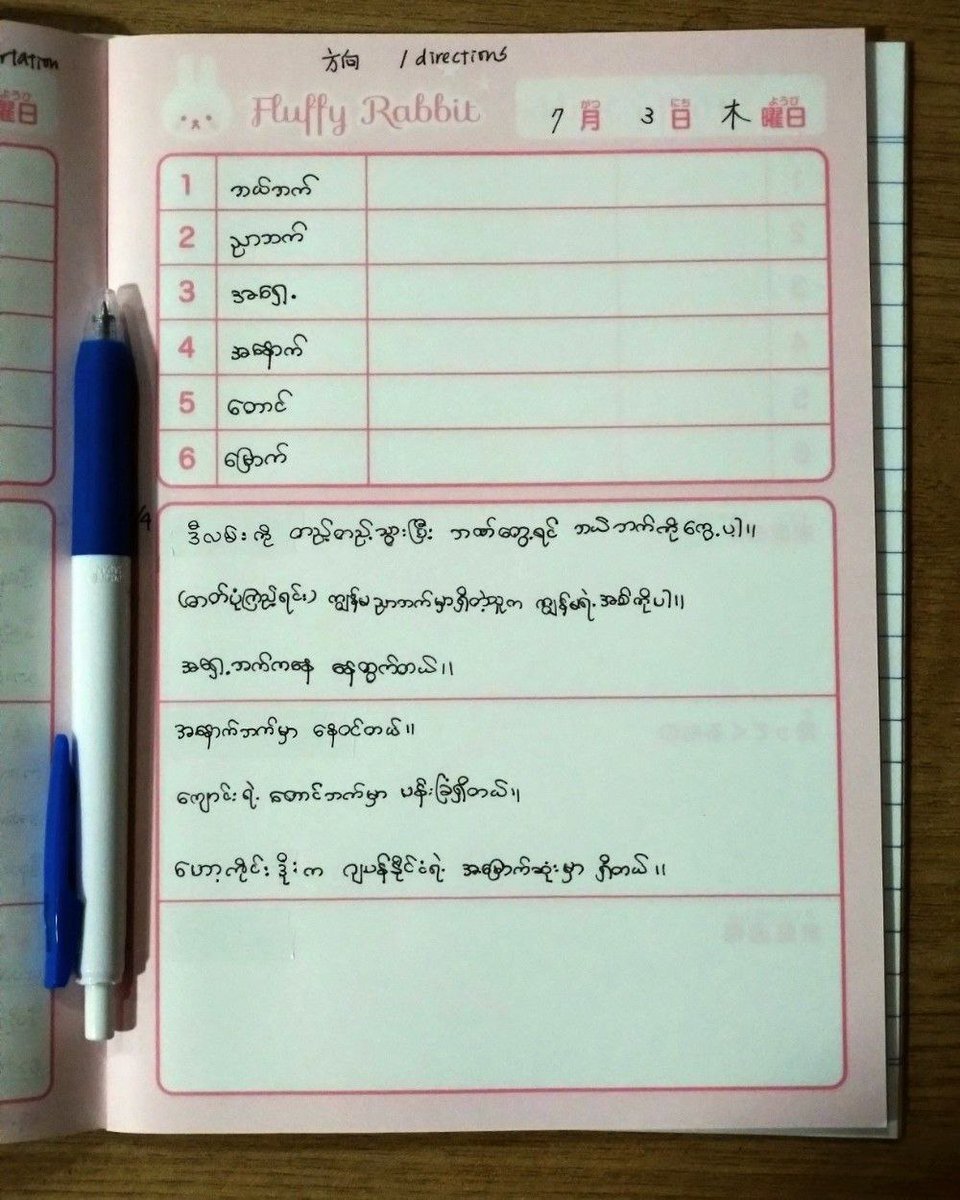 rtation
方向 / directions
曜日
ようび
Fluffy Rabbit
7 月 3 日 木 曜日
がつ にち ようび
1 ဘယ်ဘက်
2 ညာဘက်
3 အရှေ့
4 အနောက်
5 တောင်
6 မြောက်
ဒီလမ်းကို တည့်တည့်သွားပြီး ဘဏ်တွေ့ရင် ဘယ်ဘက်ကိုကွေ့ပါ။
(ဓာတ်ပုံကြည့်ရင်း) ကျွန်မညာဘက်မှာရှိတဲ့သူက ကျွန်မရဲ့အစ်ကိုပါ။
အရှေ့ဘက်ကနေ နေထွက်တယ်။
အနောက်ဘက်မှာ နေဝင်တယ်။
ကျောင်းရဲ့ တောင်ဘက်မှာ ပန်းခြံရှိတယ်။
ဟော့ကိုင်းဒိုးက ဂျပန်နိုင်ငံရဲ့ အမြောက်ဆုံးမှာ ရှိတယ်။